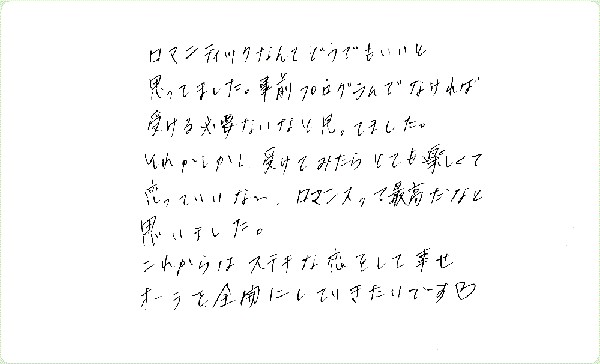 ロマンティックなんてどうでもいいと
思ってました。事前プログラムでなければ
受ける必要ないなと思ってました。
それがしかし 受けてみたらとても楽しくて
恋っていいな〜、ロマンスって最高だなと
思いました。
これからは ステキな恋をして幸せ
オーラを全開にしていきたいです♡